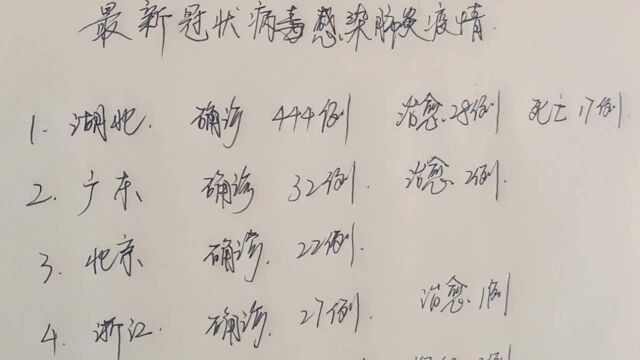 最新冠状病毒感染肺炎疫情.
1. 湖北. 确诊 444例 治愈.28例 死亡17例.
2. 广东 确诊 32例. 治愈.2例.
3. 北京 确诊. 22例.
4. 浙江. 确诊. 27例. 治愈.1例